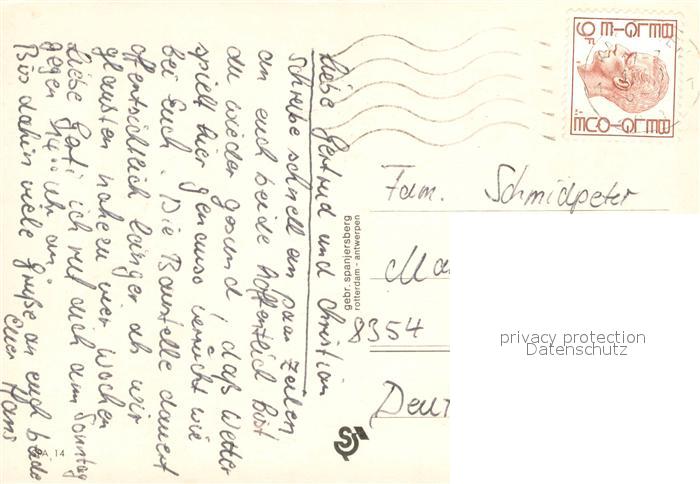 Liebe Gertrud und Christian
Schreibe schnell ein paar Zeilen
an euch beide. Hoffentlich bist
du wieder gesund, das Wetter
spielt hier genauso verrückt wie
bei Euch. Die Baustelle dauert
offensichtlich länger als wir
glaubten nahezu vier Wochen
Liebe Gerti ich ruf dich am Sonntag
gegen 14.00 Uhr an.
Bis dahin viele Grüße an euch beide
Euer Hans
PA. 14
gebr. spanjersberg
rotterdam - antwerpen
BELGIE
6F
BELGIQUE
Fam. Schmidpeter
Ma
8354
Deu
privacy protection
Datenschutz